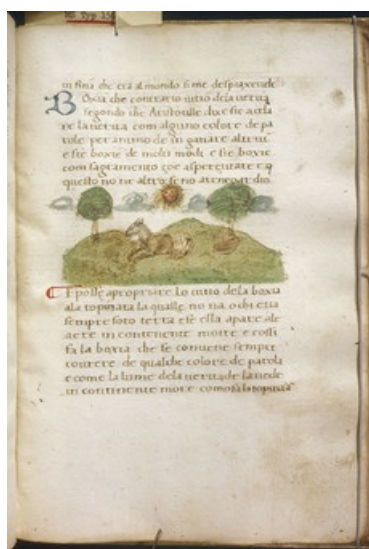 in fina che era al mondo si me despiaxe tale
Boxia che contrario uitio dela uerita
segondo che Aristotille dixe sie acela
re la uerita com alguno colore de pa
role per animo de in ganare altrui
e sie boxie de molti modi e sie boxie
com sagramento çoe asperçurare e q
questo no ne altro se no a renegar dio
E posse apropriare lo uitio dela boxia
ala topinara la qualle no na ochi e ua
sempre soto terra e se ella apare ale
aere in conteniente more e cossi
fa la boxia che se conuene sempre
courere de qualche colore de parola
e come la lume dela uerita de la uede
in continente more como fa la topinara